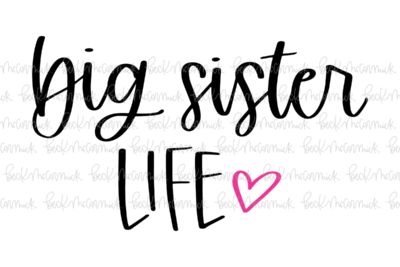 big sister
LIFE